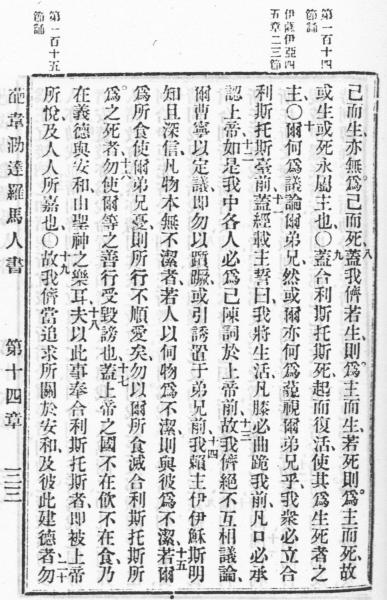 第一百十四
節誦
伊薩伊亞四
五章二三節
第一百十五
節誦
己而生、亦無爲己而死、八蓋我儕若生、則爲主而生、若死則爲主而死、故
或生或死永屬主也、九○蓋合利斯托斯死起而復活、使其爲生死者之
主、十○爾何爲議論爾弟兄、然或爾亦何爲藐視爾弟兄乎、我衆必立合
利斯托斯臺前、十一蓋經載主誓曰、我將生活、凡膝必曲跪我前、凡口必承
認上帝、十二如是我中各人必爲己陳詞於上帝前、十三故我儕絕不互相議論、
爾曹寧以定議、即勿以躓蹶或引誘置于弟兄前、十四我賴主伊伊穌斯明
知且深信、凡物本無不潔者、若人以何物爲不潔、則與彼爲不潔、十五若爾
爲所食使爾弟兄憂、則所行不順愛矣、勿以爾所食滅合利斯托斯所
爲之死者、十六勿使爾等之善行受毀謗也、十七蓋上帝之國不在飲不在食、乃
在義德與安和、由聖神之樂耳、十八夫以此事奉合利斯托斯者、即被上帝
所悅及人人所嘉也、○十九故我儕當追求所關於安和及彼此建德者、二十勿
葩韋泐達羅馬人書 第十四章 三三